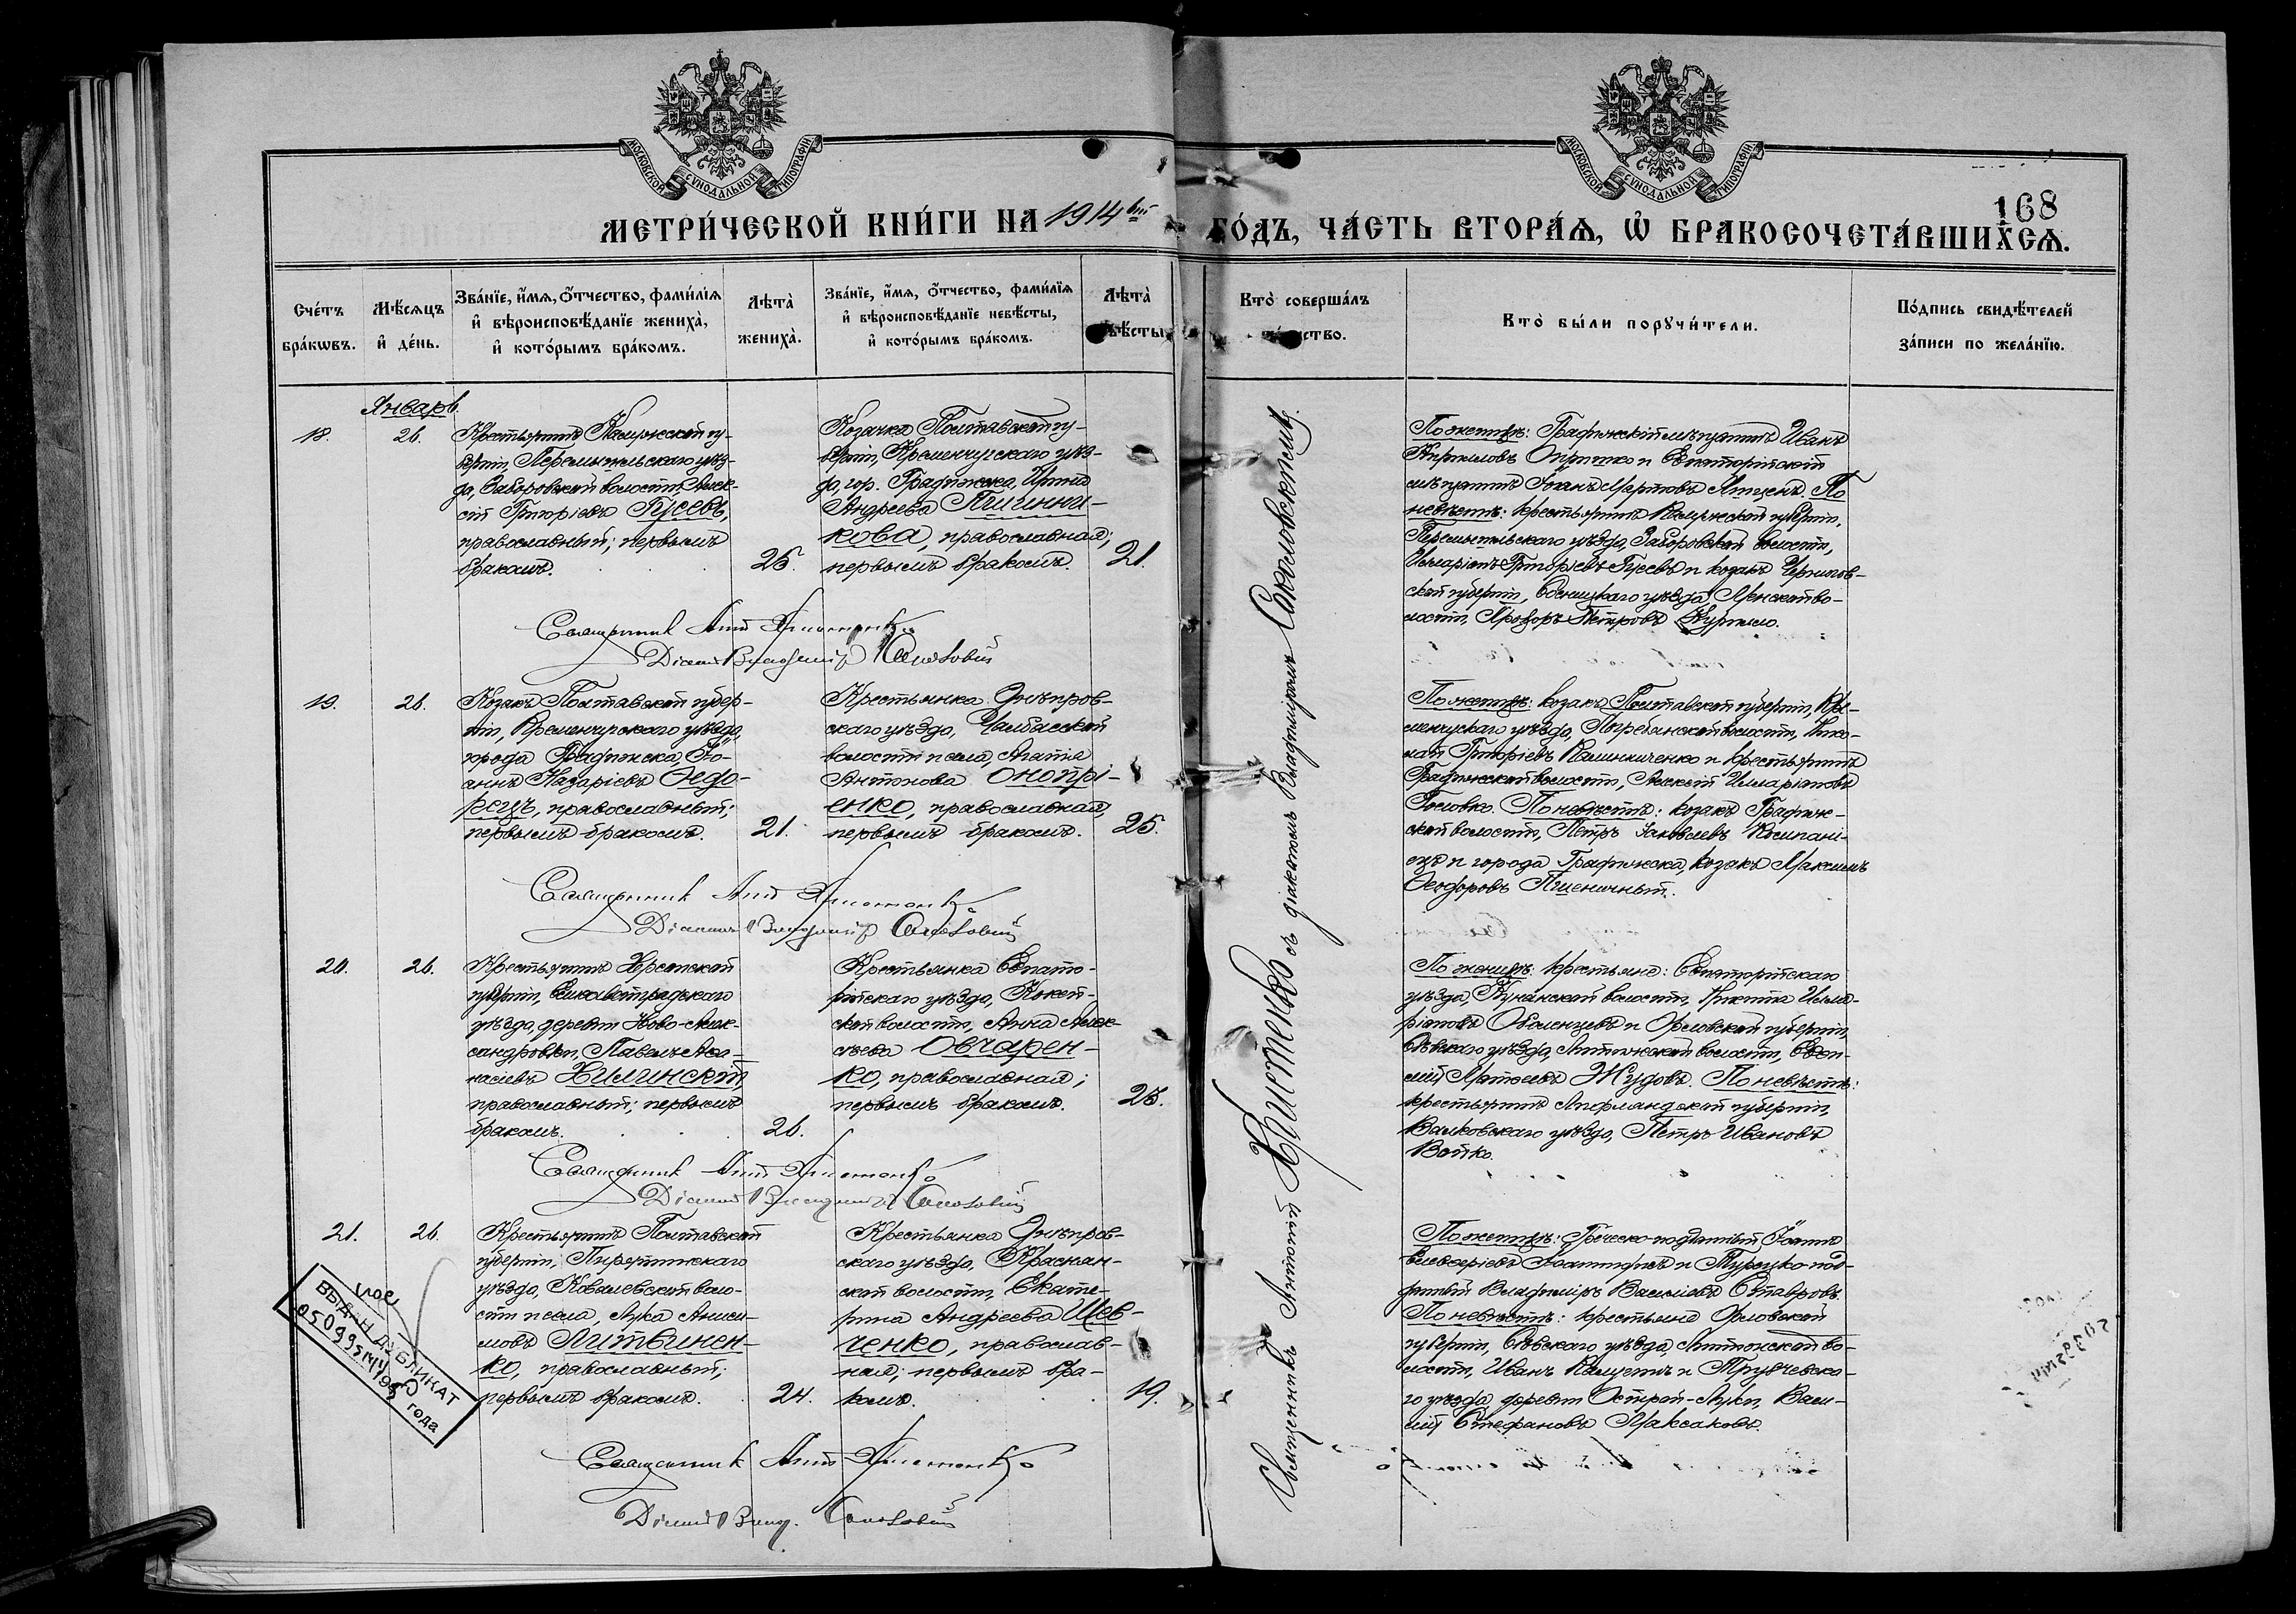 МОСКОВСКОЙ СѴНОДАЛЬНОЙ ТИПОГРАФІИ
МОСКОВСКОЙ СѴНОДАЛЬНОЙ ТИПОГРАФІИ
168
МЕТРИ́ЧЕСКОЙ КНИ́ГИ НА 1914 ГО́ДЪ, ЧА́СТЬ ВТОРА́Ѧ, Ѡ҆ БРАКОСОЧЕТА́ВШИХСѦ.
Сче́тъ бра́кѡвъ.
Мѣ́сѧцъ и҆ де́нь.
Зва́нїе, и҆́мѧ, ѻ҆́тчество, фами́лїѧ и҆ вѣроисповѣ́данїе жениха̀, и҆ кото́рымъ бра́комъ.
Лѣта̀ жениха̀.
Зва́нїе, и҆́мѧ, ѻ҆́тчество, фами́лїѧ и҆ вѣроисповѣ́данїе невѣ́сты, и҆ кото́рымъ бра́комъ.
Лѣта̀ невѣ́сты
Кто̀ соверша́лъ та́инство.
Кто̀ бы́ли порꙋчи́тели.
По́дпись свидѣ́телей за́писи по жела́нїю.
Январь.
18.
26.
Крестьянинъ Калужской гу-
берніи, Перемышльскаго уѣз-
да, Заборовской волости, Алек-
сѣй Григоріевъ Гусевъ,
православный; первымъ
бракомъ.
25.
Козачка Полтавской гу-
берніи, Кременчугскаго уѣз-
да, гор. Градижска,
Андреева
кова, православная;
первымъ бракомъ.
21.
По женихѣ: Градижскій мѣщанинъ Иванъ
Кирилловъ и Евпаторійскій
мѣщанинъ Іоаннъ Мартовъ По
невѣстѣ: крестьянинъ Калужской губерніи,
Перемышльскаго уѣзда, Заборовской волости,
Илларіонъ Григоріевъ Гусевъ и козакъ Чернигов-
ской губерніи, Сосницкаго уѣзда, Менской во-
лости, Прохоръ Петровъ
Священник Ант Хвитенко
Діакон Владимір Соколовский
19.
26.
Козакъ Полтавской губер-
ніи, Кременчугскаго уѣзда,
города Градижска, Іо-
аннъ Назаріевъ Федо-
рецъ, православный;
первымъ бракомъ.
21.
Крестьянка Днѣпров-
скаго уѣзда, Чалбасской
волости и села, Агафія
Антонова Онопрі-
енко, православная,
первымъ бракомъ.
25.
По женихѣ: козакъ Полтавской губерніи, Кре-
менчугскаго уѣзда, Погребянской волости, Нико-
лай Григоріевъ Калиниченко и крестьянинъ
Градижской волости, Алексѣй Илларіоновъ
Головко. По невѣстѣ: козакъ Градиж-
ской волости, Петръ Іаковлевъ Компані-
ецъ и города Градижска, козакъ Максимъ
Феодоровъ Пшеничный.
Священник Ант Хвитенко
Діакон Владимір Соколовский
20.
26.
Крестьянинъ Херсонской
губерніи, Елисаветградскаго
уѣзда, деревни Ново-Алек-
сандровки, Павелъ Аѳа-
насіевъ Хилинскій
православный; первымъ
бракомъ.
26.
Крестьянка Евпато-
рійскаго уѣзда, Кокей-
ской волости, Анна Алек-
сѣева Овчарен-
ко, православная;
первымъ бракомъ.
25.
По женихѣ: крестьяне: Евпаторійскаго
уѣзда, волости, Никита Илла-
ріоновъ Оболенцевъ и Орловской губерніи,
Сѣвскаго уѣзда, волости,
Матѳеевъ Жудовъ. По невѣстѣ:
крестьянинъ Лифляндской губерніи,
Валковскаго уѣзда, Петръ Ивановъ
Войко.
Священник Ант Хвитенко
Діакон Владимір Соколовский
21.
26.
Крестьянинъ Полтавской
губерніи, Пирятинскаго
уѣзда, Ковалевской воло-
сти и села, Лука Аниси-
мовъ Литвинен-
ко, православный;
первымъ бракомъ.
24.
Крестьянка Днѣпров-
скаго уѣзда, Краснян-
ской волости, Екате-
рина Андреева Шев-
ченко, православ-
ная; первымъ бра-
комъ.
19.
По женихѣ: Греческо-подданный Іоаннъ
и Турецко-под-
данный Владиміръ Василіевъ Ставровъ.
По невѣстѣ: крестьяне Орловской
губерніи, Сѣвскаго уѣзда во-
лости, Иванъ и Трубчевска-
го уѣзда, деревни Острой-Луки, Васи-
лій Стефановъ Максаковъ.
Священник Ант Хвитенко
Діакон Влад. Соколовский
Священникъ Антоній Хвитенко съ діакономъ Владиміромъ Соколовскимъ.
ВЫДАН ДУБЛИКАТ
года